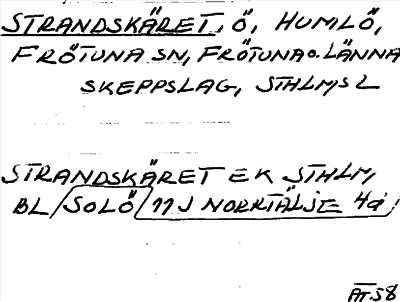 STRANDSKÄRET, Ö, HUMLÖ,
FRÖTUNA SN, FRÖTUNA O. LÄNNA
SKEPPSLAG, STHLMS L
STRANDSKÄRET EK STHLM,
BL SOLÖ 11J NORRTÄLJE 4d
ÄT.58